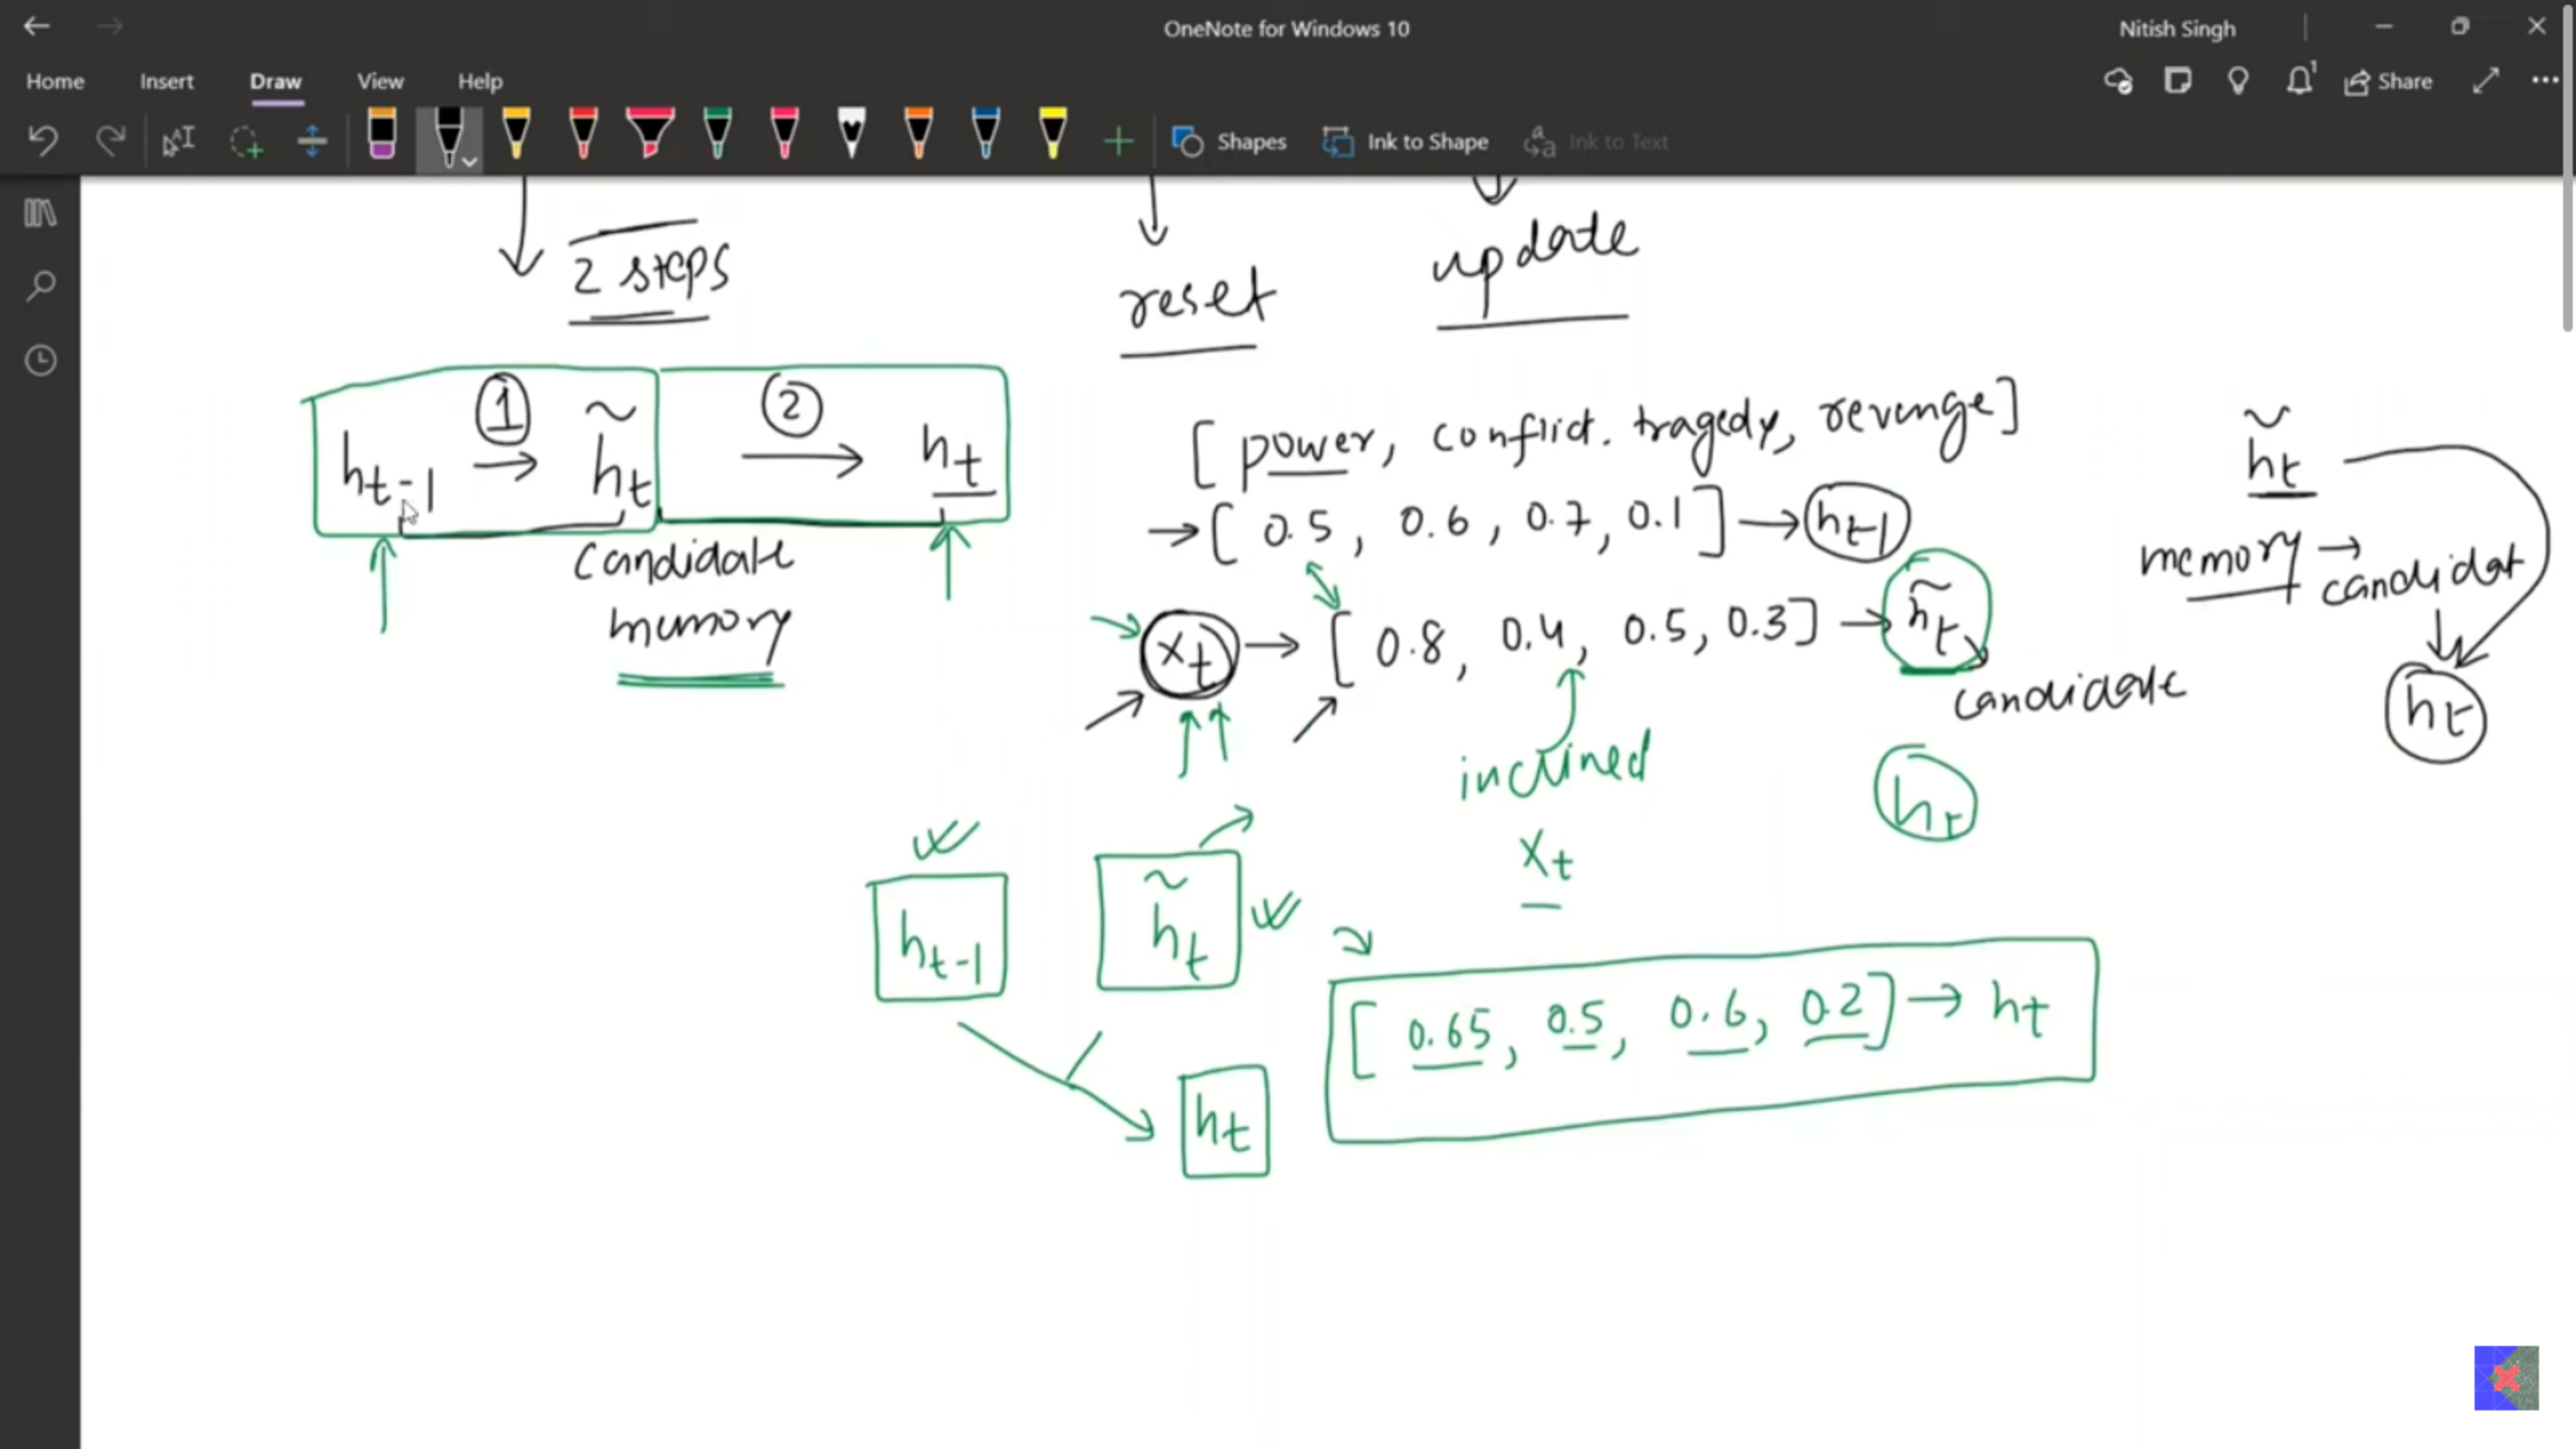 OneNote for Windows 10
Nitish Singh
Home Insert Draw View Help
1
Share
Shapes Ink to Shape Ink to Text
2 steps
reset
update
h_{t-1} ① → h̃_t ② → h_t
candidate
memory
[power, conflict. tragedy, revenge]
→ [0.5, 0.6, 0.7, 0.1] → h_{t-1}
x_t → [0.8, 0.4, 0.5, 0.3] → h̃_t
candidate
h̃_t
memory → candidat
h_t
inclined
x_t
h_t
h_{t-1}
h̃_t
[0.65, 0.5, 0.6, 0.2] → h_t
h_t